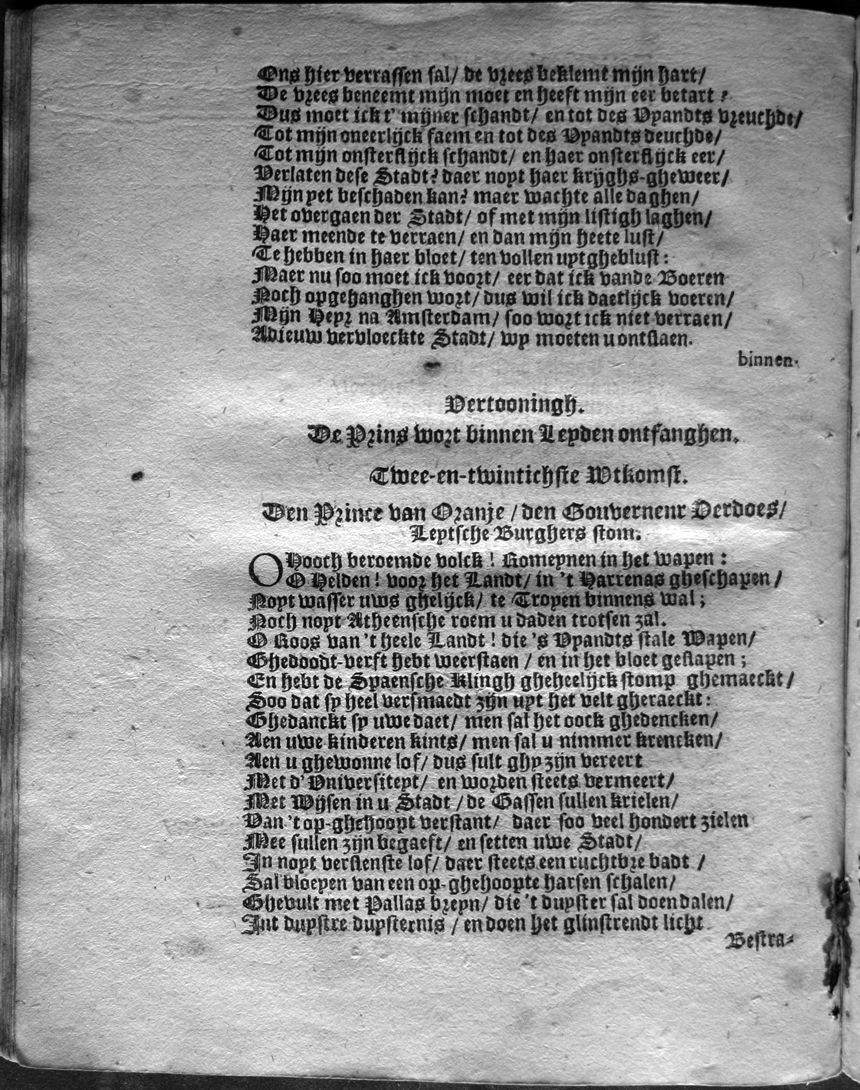 Ons hier verrassen sal/ de vrees beklemt mijn hart/
De vrees beneemt mijn moet en heeft mijn eer betart ?
Dus moet ick t' mijner schandt/ en tot des Vyandts vreuchde/
Tot mijn oneerlijck faem en tot des Vyandts deuchde/
Tot mijn onsterflijck schandt/ en haer onsterflijck eer/
Verlaten dese Stadt? daer noyt haer krijghs-gheweer/
Mijn yet beschaden kan? maer wachte alle daghen/
Het overgaen der Stadt/ of met mijn listigh laghen/
Haer meende te verraen/ en dan mijn heete lust/
Te hebben in haer bloet/ ten vollen uytgheblust:
Maer nu soo moet ick voort/ eer dat ick vande Boeren
Noch opgehanghen wort/ dus wil ick daetlijck voeren/
Mijn Heyr na Amsterdam/ soo wort ick niet verraen/
Adieuw vervloeckte Stadt/ wy moeten u ontslaen.
binnen.
Vertooningh.
De Prins wort binnen Leyden ontfanghen.
Twee-en-twintichste Wtkomst.
Den Prince van Oranje / den Gouverneur Derdoes/
Leytsche Burghers stom.
O Hooch beroemde volck ! Romeynen in het wapen :
O Helden ! voor het Landt/ in 't Harrenas gheschapen /
Noyt wasser uws ghelijck/ te Troyen binnens wal ;
Noch noyt Atheensche roem u daden trotsen zal.
O Roos van 't heele Landt ! die 's Vyandts stale Wapen/
Ghedoodt-verft hebt weerstaen / en in het bloet geslapen ;
En hebt de Spaensche Klingh gheheelijck stomp ghemaeckt /
Soo dat sy heel versmaedt zijn uyt het velt gheraeckt :
Ghedanckt sy uwe daet/ men sal het oock ghedencken/
Aen uwe kinderen kints/ men sal u nimmer krencken/
Aen u ghewonne lof/ dus sult ghy zijn vereert
Met d' Universiteyt/ en worden steets vermeert/
Met Wijsen in u Stadt / de Gassen sullen krielen/
Van 't op-ghehoopt verstant/ daer soo veel hondert zielen
Mee sullen zijn begaeft/ en setten uwe Stadt/
In noyt verslenste lof/ daer steets een ruchtbre badt /
Sal vloeyen van een op-ghehoopte harsen schalen/
Ghevult met Pallas breyn/ die 't duyster sal doen dalen/
Int duystre duysternis / en doen het glinstrendt licht
Bestra-